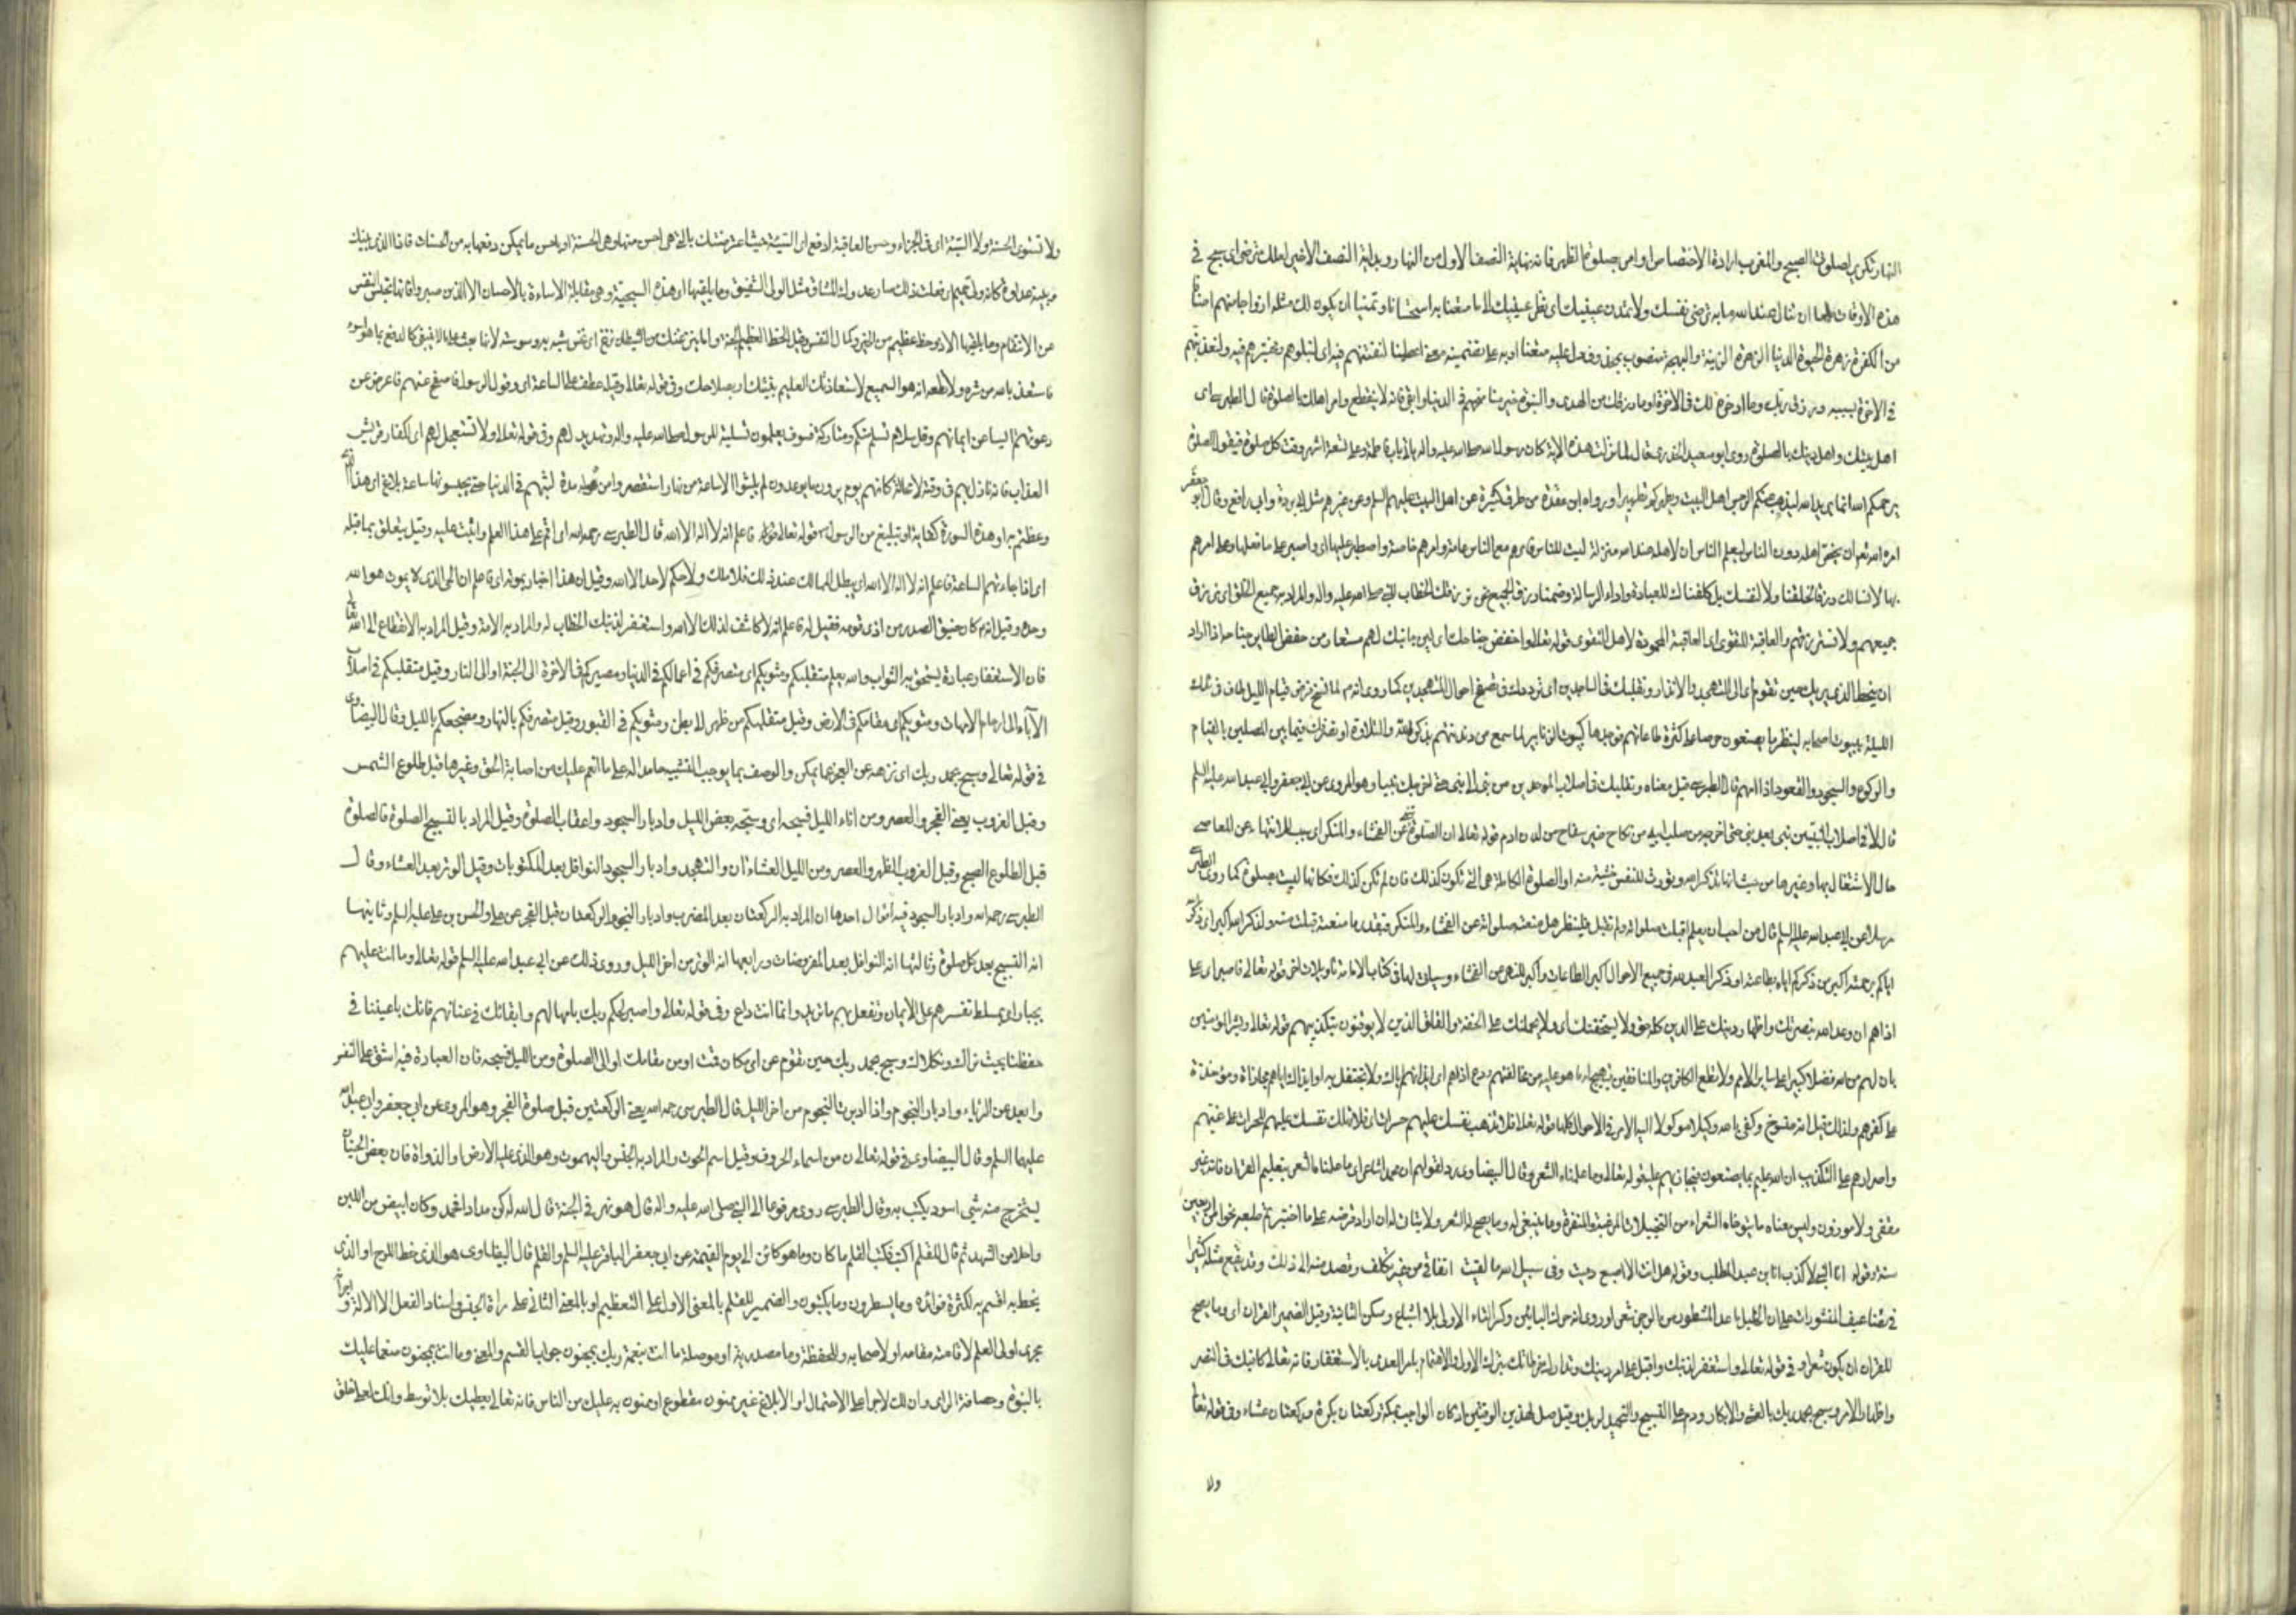 النهار تكرير لصلوتى الصبح والمغرب ارادة الاختصاص او امر بصلوة الظهر فانه نهاية النصف الاول من النهار وبداية النصف الاخير لعلك ترضى اى سبح فى
هذه الاوقات طمعا ان تنال عند الله ما به ترضى نفسك ولا تمدن عينيك اى نظر عينيك الى ما متعنا به استحسانا وتمنيا ان يكون لك مثله ازواجا منهم اصنافا
من الكفرة زهرة الحيوة الدنيا الزهرة الزينة والبهجة منصوب بمحذوف دل عليه متعنا او به على تضمينه معنى اعطينا لنفتنهم فيه اى لنبلوهم ونختبرهم فيه او لنعذبهم
فى الاخرة بسببه ورزق ربك وما ادخره لك فى الاخرة او ما رزقك من الهدى والنبوة خير مما منحهم فى الدنيا وابقى فانه لا ينقطع وامر اهلك بالصلوة قال الطبرسى اى
اهل بيتك واهل دينك بالصلوة روى ابو سعيد الخدرى قال لما نزلت هذه الاية كان رسول الله صلى الله عليه واله ياتى باب فاطمة وعلى تسعة اشهر وقت كل صلوة فيقول الصلوة
يرحمكم الله انما يريد الله ليذهب عنكم الرجس اهل البيت ويطهركم تطهيرا ورواه ابن عقدة من طرق كثيرة عن اهل البيت عليهم السلم وعن غيرهم مثل ابى بردة وابى رافع وقال ابو جعفر
امره الله تعالى ان يخص اهله دون الناس ليعلم الناس ان لاهله عند الله منزلة ليست للناس فامرهم مع الناس عامة وامرهم خاصة واصطبر عليها اى واصبر على ما فعلها وعلى امرهم
بها لا نسالك رزقا لخلقنا ولا لنفسك بل كلفناك للعبادة واداء الرسالة وضمنا رزق الجميع نحن نرزقك الخطاب للنبى صلى الله عليه واله والمراد به جميع الخلق اى نرزق
جميعهم ولا نسترزقهم والعاقبة للتقوى اى العاقبة المحمودة لاهل التقوى قوله تعالى واخفض جناحك اى لين جانبك لهم مستعار من خفض الطاير جناحه اذا اراد
ان ينحط الذى يريك حين تقوم اى الى التهجد والانذار وتقلبك فى الساجدين اى ترددك فى تصفح احوال المتهجدين كما روى انه لما نسخ فرض قيام الليل طاف فى تلك
الليلة ببيوت اصحابه لينظر ما يصنعون حرصا على كثرة طاعاتهم فوجدها كبيوت الزنابير لما سمع من دندنتهم بذكر الله والتلاوة او تصرفك فيما بين المصلين بالقيام
والركوع والسجود والقعود اذا اممتهم قال الطبرسى قيل معناه وتقلبك فى اصلاب الموحدين من نبى الى نبى حتى اخرجك نبيا وهو المروى عن ابى جعفر وابى عبد الله عليه السلم
قالا فى اصلاب النبيين نبى بعد نبى حتى اخرجه من صلب ابيه من نكاح غير سفاح من لدن ادم قوله تعالى ان الصلوة تنهى عن الفحشاء والمنكر اى سبب للانتهاء عن المعاصى
حال الاشتغال بها وغيرها من حيث انها تذكر الله وتورث للنفس خشية منه او الصلوة الكاملة هى التى تكون كذلك فان لم تكن كذلك فكانها ليست بصلوة كما روى الطبرسى
مرسلا عن ابى عبد الله عليه السلم قال من احب ان يعلم اقبلت صلوته ام لم تقبل فلينظر هل منعته صلوته عن الفحشاء والمنكر فبقدر ما منعته قبلت منه ولذكر الله اكبر اى ذكر الله
اياكم برحمته اكبر من ذكركم اياه بطاعته او ذكر العبد لله فى جميع الاحوال اكبر الطاعات او اكبر للنهى من الفحشاء وسياتى لها فى كتاب الامامة تاويلات اخر قوله تعالى فاصبر اى على
اذاهم ان وعد الله بنصرتك واظهار دينك على الدين كله حق ولا يستخفنك اى ولا يحملنك على الخفة والقلق الذين لا يوقنون بتكذيبهم قوله تعالى وبشر المؤمنين
بان لهم من الله فضلا كبيرا على ساير الامم ولا تطع الكافرين والمنافقين تهييج له على ما هو عليه من مخالفتهم ودع اذاهم اى ايذائهم اياك ولا تحتفل به او ايذائك اياهم مجازاة ومؤاخذة
على كفرهم ولذلك قيل انه منسوخ وكفى بالله وكيلا موكولا اليه الامر فى الاحوال كلها قوله تعالى فلا تذهب نفسك عليهم حسرات اى فلا تهلك نفسك عليهم للحسرات على غيهم
واصرارهم على التكذيب ان الله عليم بما يصنعون فيجازيهم عليه قوله تعالى وما علمناه الشعر وقال البيضاوى رد لقولهم ان محمدا شاعر اى ما علمناه الشعر بتعليم القران فانه غير
مقفى ولا موزون وليس معناه ما يتوخاه الشعراء من التخييلات المرغبة والمنفرة وما ينبغى له وما يصح له الشعر ولا يتاتى له ان اراد قرضه على ما اختبرتم طبعه نحوا من اربعين
سنة وقوله انا النبى لا كذب انا ابن عبد المطلب وقوله هل انت الا اصبع دميت وفى سبيل الله ما لقيت اتفاقى من غير تكلف وقصد منه الى ذلك وقد يقع مثله كثيرا
فى تضاعيف المنثورات على ان الخليل ما عد المشطور من الرجز شعرا وروى انه حرك البائين وكسر التاء الاولى بلا اشباع وسكن الثانية وقيل الضمير للقران اى وما يصح
للقران ان يكون شعرا وفى قوله تعالى واستغفر لذنبك واقبل على امر دينك وتدارك فرطاتك بترك الاولى والاهتمام بامر العدى بالاستغفار فانه تعالى كافيك فى النصر
واظهار الامر وسبح بحمد ربك بالعشى والابكار ودم على التسبيح والتحميد لربك وقيل صل لهذين الوقتين اذ كان الواجب بمكة ركعتان بكرة وركعتان عشاء وفى قوله تعالى
ولا
ولا تستوى الحسنة ولا السيئة اى فى الجزاء وحسن العاقبة ادفع اى السيئة حيث اعترضتك بالتى هى احسن منها وهى الحسنة او باحسن ما يمكن دفعها به من الحسنات فاذا الذى بينك
وبينه عداوة كانه ولى حميم اى فعلت ذلك صار عدوك المشاق مثل الولى الشفيق وما يلقيها اى هذه السجية وهى مقابلة الاساءة بالاحسان الا الذين صبروا فانها تحبس النفس
عن الانتقام وما يلقيها الا ذو حظ عظيم من الخير وكمال النفس وقيل الحظ العظيم الجنة واما ينزغنك من الشيطان نزغ اى نخس شبه به وسوسته لانها بعث على ما لا ينبغى كالدفع بما هو اسوء
فاستعذ بالله من شره ولا تطعه انه هو السميع لاستعاذتك العليم بنيتك او بصلاحك وفى قوله تعالى وقيله عطف على الساعة اى وقول الرسول فاصفح عنهم فاعرض عن
دعوتهم ايسا عن ايمانهم وقل سلام تسلم منكم ومتاركة فسوف يعلمون تسلية للرسول صلى الله عليه واله وتهديد لهم وفى قوله تعالى ولا تستعجل لهم اى لكفار قريش
العذاب فانه نازل بهم فى وقته لا محالة كانهم يوم يرون ما يوعدون لم يلبثوا الا ساعة من نهار استقصروا من هوله مدة لبثهم فى الدنيا حتى يحسبونها ساعة بلاغ اى هذا الذى
وعظتم به او هذه السورة كفاية او تبليغ من الرسول قوله تعالى فاعلم انه لا اله الا الله قال الطبرسى رحمه الله اى اقم على هذا العلم واثبت عليه وقيل يتعلق بما قبله
اى اذا جاءتهم الساعة فاعلم انه لا اله الا الله اى يبطل الممالك عند ذلك فلا ملك ولا حكم لاحد الا الله وقيل ان هذا اخبار بموته اى فاعلم ان الحى الذى لا يموت هو الله
وحده وقيل انه كان ضيق الصدر من اذى قومه فقيل له فاعلم انه لا كاشف لذلك الا الله واستغفر لذنبك الخطاب له والمراد به الامة وقيل المراد به الانقطاع الى الله تعالى
فان الاستغفار عبادة يستحق به الثواب والله يعلم متقلبكم ومثويكم اى متصرفكم فى اعمالكم فى الدنيا ومصيركم فى الاخرة الى الجنة او الى النار وقيل متقلبكم فى اصلاب
الآباء الى ارحام الامهات ومثويكم اى مقامكم فى الارض وقيل متقلبكم من ظهر الى بطن ومثويكم فى القبور وقيل متصرفكم بالنهار ومضجعكم بالليل وقال البيضاوى
فى قوله تعالى وسبح بحمد ربك اى نزهه عن العجز عما يمكن والوصف بما يوجب التشبيه حامدا له على ما انعم عليك من اصابة الحق وغيرها قبل طلوع الشمس
وقبل الغروب يعنى الفجر والعصر ومن اناء الليل فسبحه اى وسبحه بعض الليل وادبار السجود واعقاب الصلوة وقيل المراد بالتسبيح الصلوة فالصلوة
قبل الطلوع الصبح وقبل الغروب الظهر والعصر ومن الليل العشاءان والتهجد وادبار السجود النوافل بعد المكتوبات وقيل الوتر بعد العشاء وقال
الطبرسى رحمه الله وادبار السجود فيه اقوال احدها ان المراد به الركعتان بعد المغرب وادبار النجوم الركعتان قبل الفجر عن على والحسن بن على عليه السلم وثانيها
انه التسبيح بعد كل صلوة وثالثها انه النوافل بعد المفروضات ورابعها انه الوتر من اخر الليل وروى ذلك عن ابى عبد الله عليه السلم قوله تعالى وما انت عليهم
بجبار اى بمسلط تقسرهم على الايمان وتفعل بهم ما تريد وانما انت داع وفى قوله تعالى واصبر لحكم ربك بامهالهم وابقائك فى عنائهم فانك باعيننا فى
حفظنا بحيث نراك ونكلاك وسبح بحمد ربك حين تقوم من اى مكان قمت او من منامك او الى الصلوة ومن الليل فسبحه فان العبادة فيه اشق على النفس
وابعد عن الرياء وادبار النجوم واذا ادبرت النجوم من اخر الليل قال الطبرسى رحمه الله يعنى الركعتين قبل صلوة الفجر وهو المروى عن ابى جعفر وابى عبد الله
عليهما السلم وقال البيضاوى فى قوله تعالى ن من اسماء الحروف وقيل اسم الحوت والمراد به الجنس او اليهموت وهو الذى عليه الارض او الدواة فان بعض الحيتان
يستخرج منه شىء اسود يكتب به وقال الطبرسى روى مرفوعا الى النبى صلى الله عليه واله قال هو نهر فى الجنة قال الله له كن مدادا فجمد وكان ابيض من اللبن
واحلا من الشهد ثم قال للقلم اكتب فكتب القلم ما كان وما هو كائن الى يوم القيمة عن ابى جعفر الباقر عليه السلم والقلم قال البيضاوى هو الذى خط اللوح او الذى
يخط به اقسم به لكثرة فوائده وما يسطرون وما يكتبون والضمير للقلم بالمعنى الاول على التعظيم او بالمعنى الثانى على ارادة الجنس واسناد الفعل الى الالة واجرائه
مجرى اولى العلم لاقامته مقامه او لاصحابه او للحفظة وما مصدرية او موصولة ما انت بنعمة ربك بمجنون جواب القسم والمعنى وما انت بمجنون منعما عليك
بالنبوة وحصافة الراى وان لك لاجرا على الاحتمال او الابلاغ غير ممنون مقطوع او ممنون به عليك من الناس فانه تعالى يعطيك بلا توسط وانك لعلى خلق